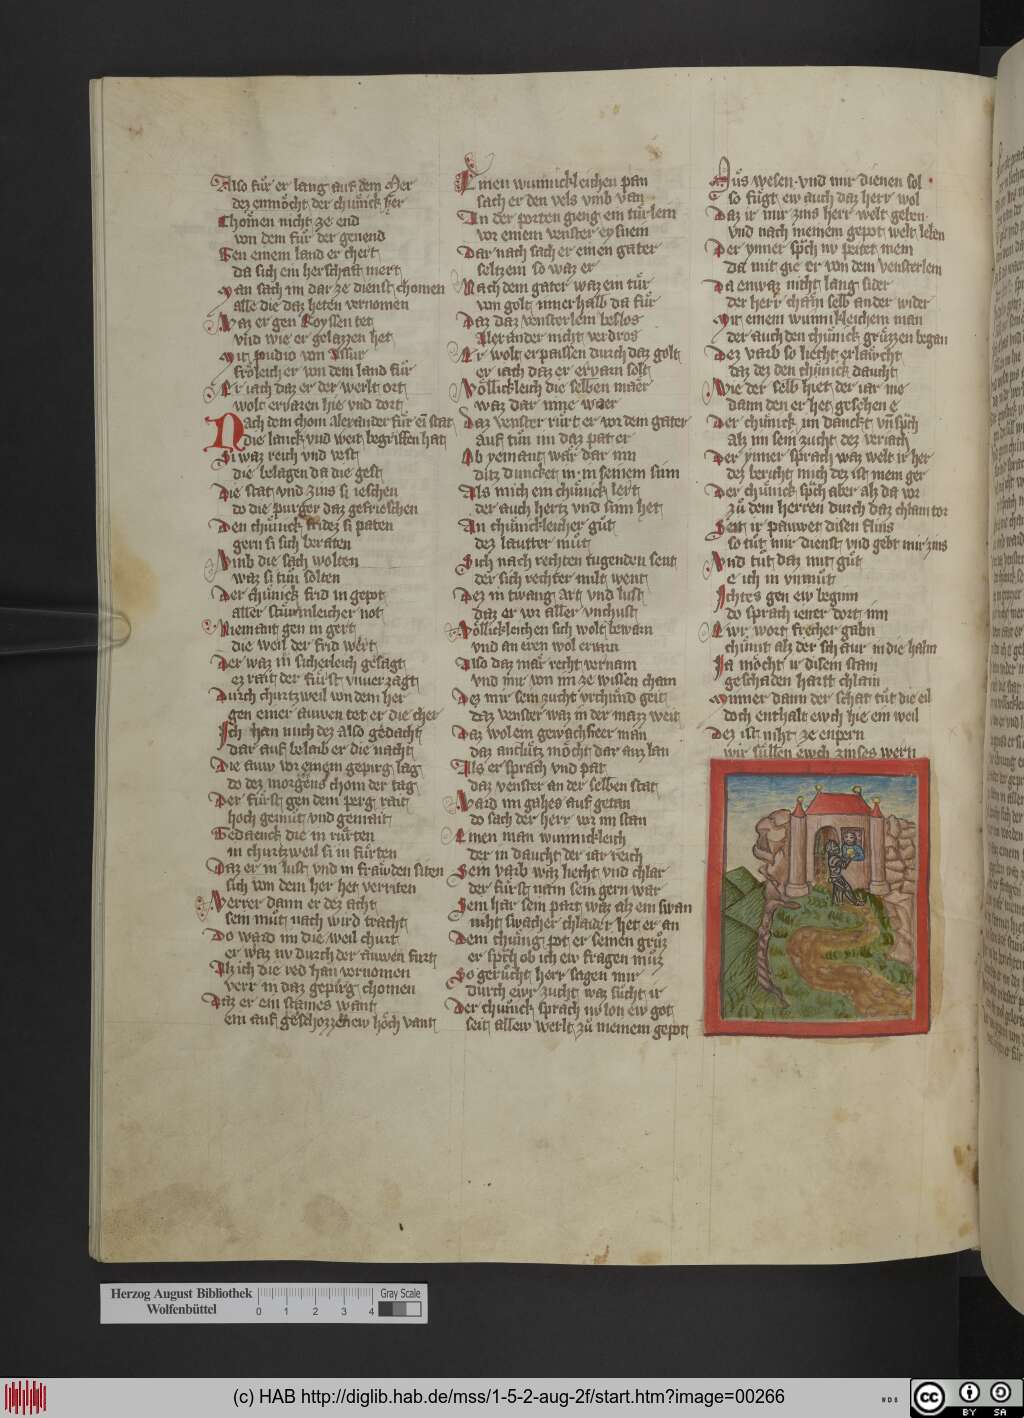 Also fuͤr er lang auf dem Mer
dez enmocht der chuͤnick her
Chomen nicht ze end
von dem fuͤr der genend
Gen einem land er chert
da sich ein herschaft mert
Man sach im dar ze dienst chomen
alle die daz heten vernomen
Waz er gen Royssen tet
vnd wie er gelazzen het
Mit poudio von Assur
froͤleich er von dem land fuͤr
Er iach daz er der werlt ort
wolt ervaren hie vnd dort
Nach dem chom Alexander fuͤr ein stat
die lanck vnd weit begriffen hat
Si waz reich vnd vest
die belagen da die gest
Die stat vnd zins si ieschen
do die purger daz gefrieschen
Den chuͤnick frides si paten
gern si sich beraten
Vmb die sach wolten
waz si tuͤn solten
Der chuͤnick frid in gepot
aller sturmleicher not
Niemant gen in gert
die weil der frid wert
Der waz in sicherleich gesagt
ez rait der fuͤrst vnverzagt
Durch churtzweil von dem her
gen einer auwen tet er die cher
Ich han mich dez also gedacht
dar auf belaib er die nacht
Die auw vor einem gepirg lag
do dez morgens chom der tag
Der fuͤrst gen dem perg rait
hoch gemuͤt vnd gemait
Gedaenck die in ruͤrten
in churtzweil si in fuͤrten
Daz er in lust vnd in frawden siten
sich von dem her het verriten
Verrer dann er dez acht
sein muͤt nach wird tracht
Do ward im die weil churt
er waz nv durch der auwen furt
Alz ich die red han vernomen
verr in daz gepirg chomen
Daz er ein staines want
ein auf geschozzen ew hoch vant
Einen wunnickleichen pau
sach er den vels vmb van
In der porten gieng ein tuͤrlein
vor einem venster eysnein
Dar nach sach er einen gater
seltzein so waz er
Nach dem gater waz ein tuͤr
von golt innerhalb da fuͤr
Daz daz vensterlein beslos
Alexander nicht verdros
Er wolt er passen durch daz golt
er iach daz er ervarn solt
Voͤllickleich die selben maer
waz dar inne waer
Daz venster ruͤrt er vor dem gater
auf tuͤn im daz pat er
Ob yemant waͤr dar inn
ditz duncket in in seinem sinn
Als mich ein chuͤnick lert
der auch hertz vnd sinn het
An chuͤnickleicher guͤt
dez lautter muͤt
Sich nach rechten tugenden sent
der sich rechter milt went
Dez in twang art vnd lust
daz er vor aller vnchust
Voͤllickleichen sich wolt bewarn
vnd an eren wol ervarn
Also daz maͤr recht vernam
vnd mir von im ze wissen cham
Dez mir sein zucht vrchund geit
daz venster waz in der mazz weit
Daz wol ein gewachseer man
daz antluͤtz moͤcht dar auz lan
Als er sprach vnd pat
daz venster an der selben stat
Ward im gahes auf getan
do sach der herr vor im stan
Einen man wunnickleich
der in daucht der iar reich
Sein varb waz liecht vnd chlar
der fuͤrst nam sein gern war
Sein har sein part waz alz ein swan
niht swacher chlaider het er an
Dem chuͤnig pot er seinen gruͤz
er sprch ob ich ew fragen muͤz
So geruͤcht herr sagen mir
durch ewr zucht waz suͤcht ir
Der chuͤnick sprach nv lon ew got
seit allew werlt zuͤ meinem gepot
Auͤs wesen vnd mir dienen sol
so fuͤgt ew auch daz herr wol
Daz ir mir zins herr welt geben
vnd nach meinem gepot welt leben
Der ynner sprch nv peitet mein
da mit gie er von dem vensterlein
Da enwaz nicht lang sider
der herr cham selb ander wider
Mit einem wunnickleichem man
der auch den chuͤnick gruͤzzen began
Dez varb so liecht erlaͤwcht
daz dez den chuͤnick daucht
Wie der selb hiet der iar me
dann den er het gesehen e
Der chuͤnick im danckt vnd sprch
alz im sein zucht dez veriach
Der ynner sprach waz welt ir her
dez bericht mich dez ist mein ger
Der chuͤnick sprch aber alz da vor
zuͤ dem herren durch daz chlain tor
Seit ir pauwet disen flins
so tuͤt mir dienst vnd gebt mir zins
Vnd tuͤt daz mit guͤt
e ich in vnmuͤt
Ichtes gen ew beginn
do sprach iener dort inn
Ewr wort frecher gabn
chuͤmt alz der schaur in die halm
Ia moͤcht ir disem stain
geschaden hartt chlain
Minner dann der schat tuͤt die eil
doch enthalt ewch hie ein weil
Dez ist niht ze enpern
wir suͤllen ewch zinses wern
Herzog August Bibliothek
Wolfenbüttel
0 1 2 3 4
Gray Scale
(c) HAB http://diglib.hab.de/mss/1-5-2-aug-2f/start.htm?image=00266
cc BY SA